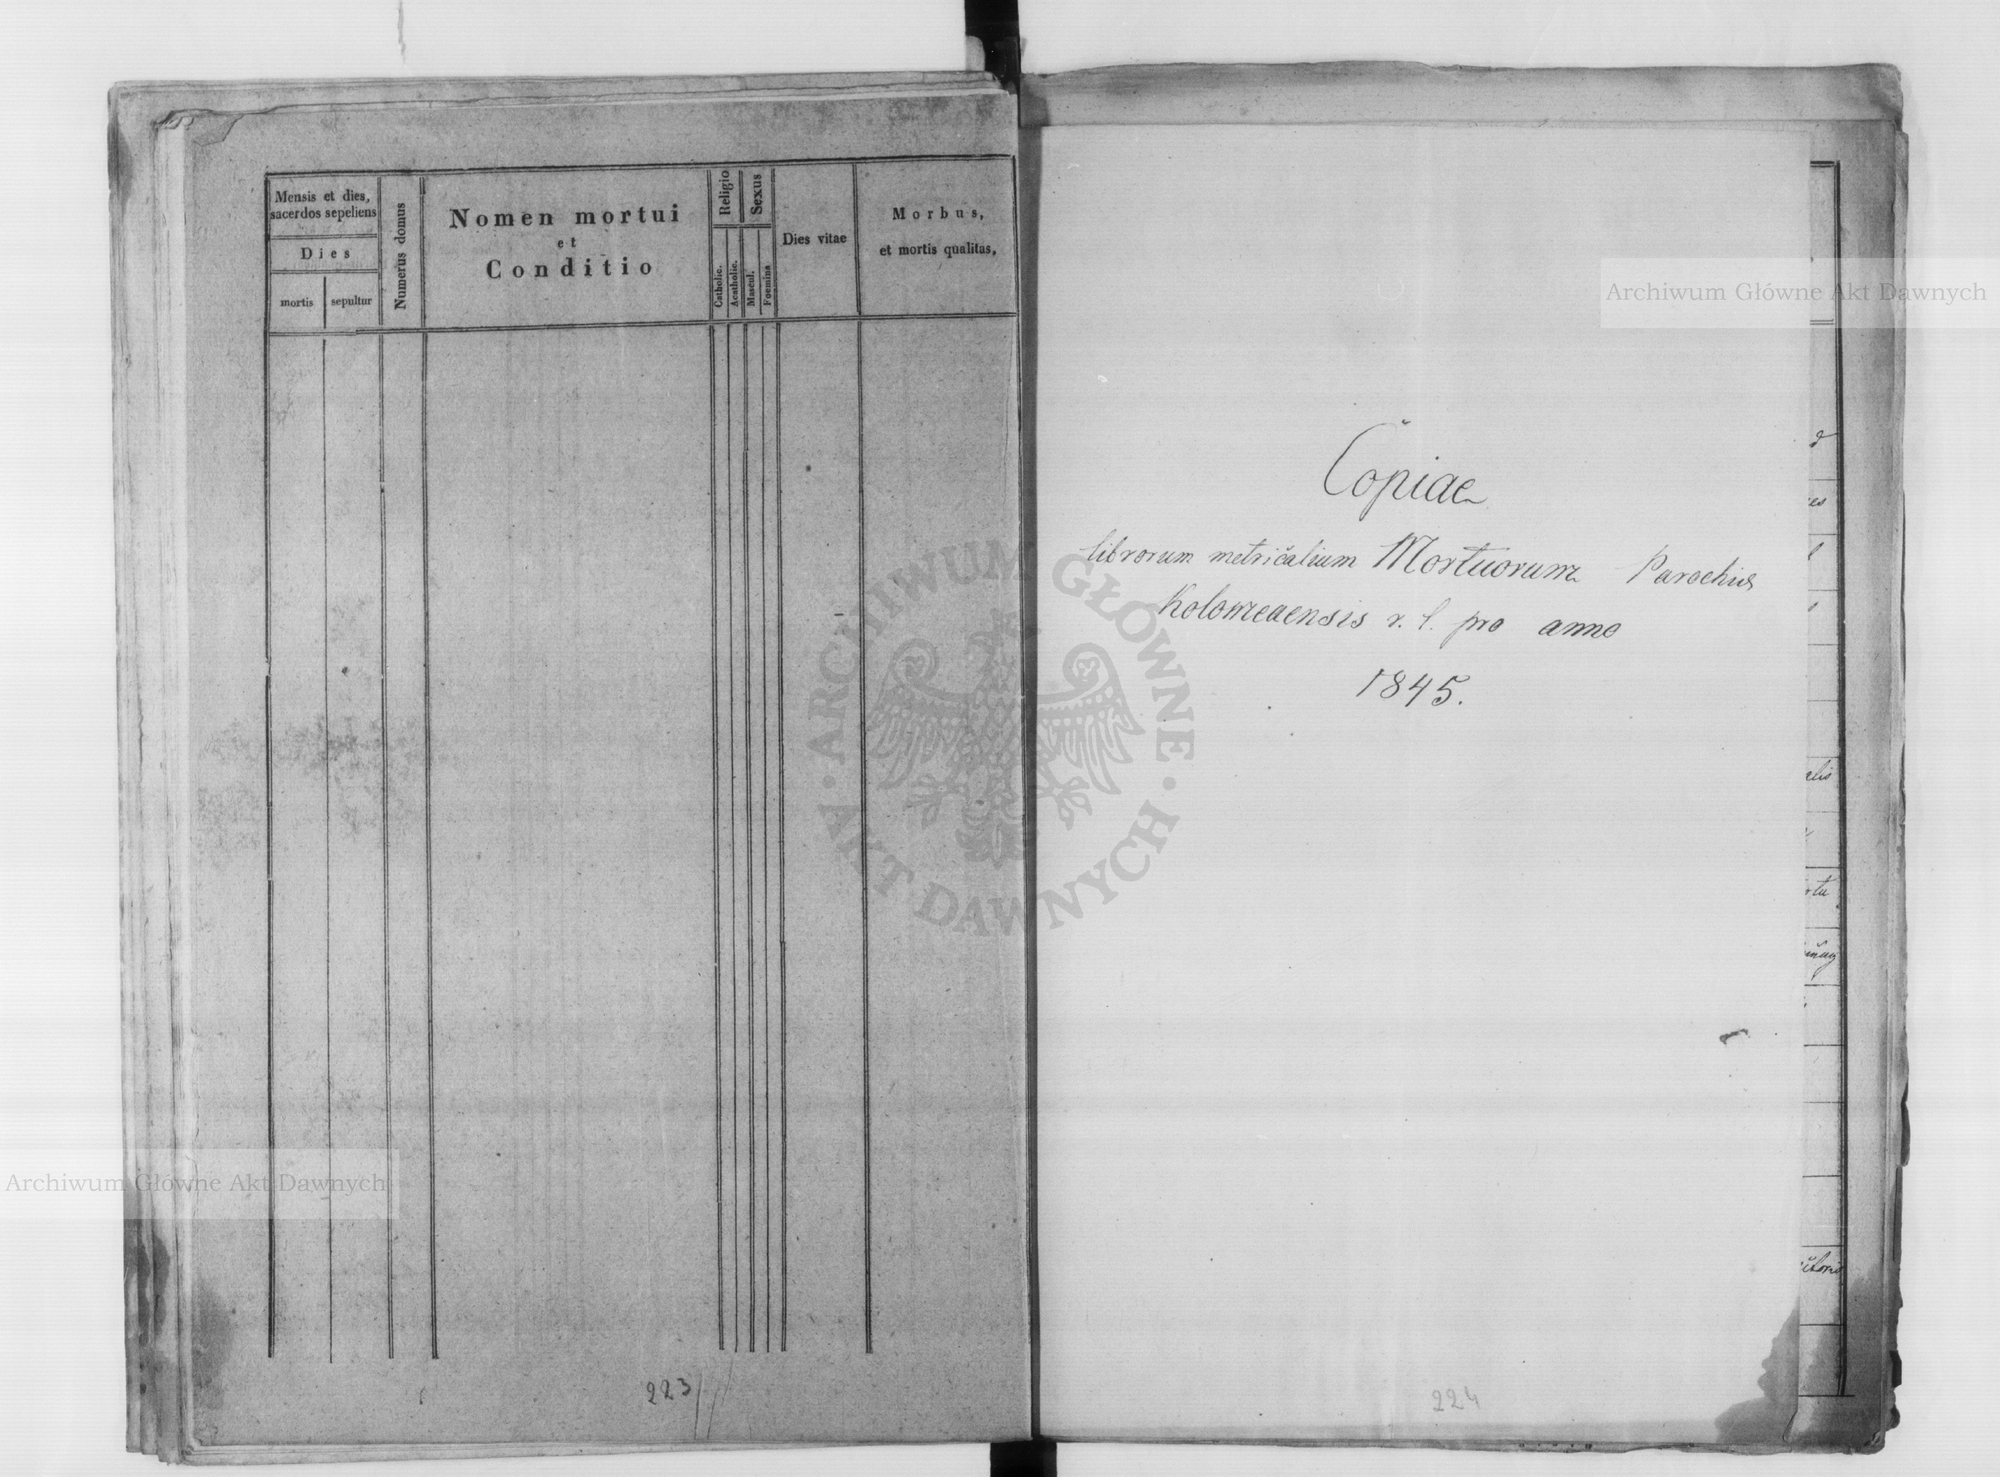 Mensis et dies,
sacerdos sepeliens
Dies
mortis
sepultur
Numerus domus
Nomen mortui
et
Conditio
Religio
Catholic.
Acatholic.
Sexus
Mascul.
Foemina
Dies vitae
Morbus,
et mortis qualitas,
223
Copiae
librorum metricalium Mortuorum Parochiae
Kolomeaensis r. l. pro anno
1845.
224
alis
Archiwum Główne Akt Dawnych
Archiwum Główne Akt Dawnych
ARCHIWUM GŁÓWNE
AKT DAWNYCH